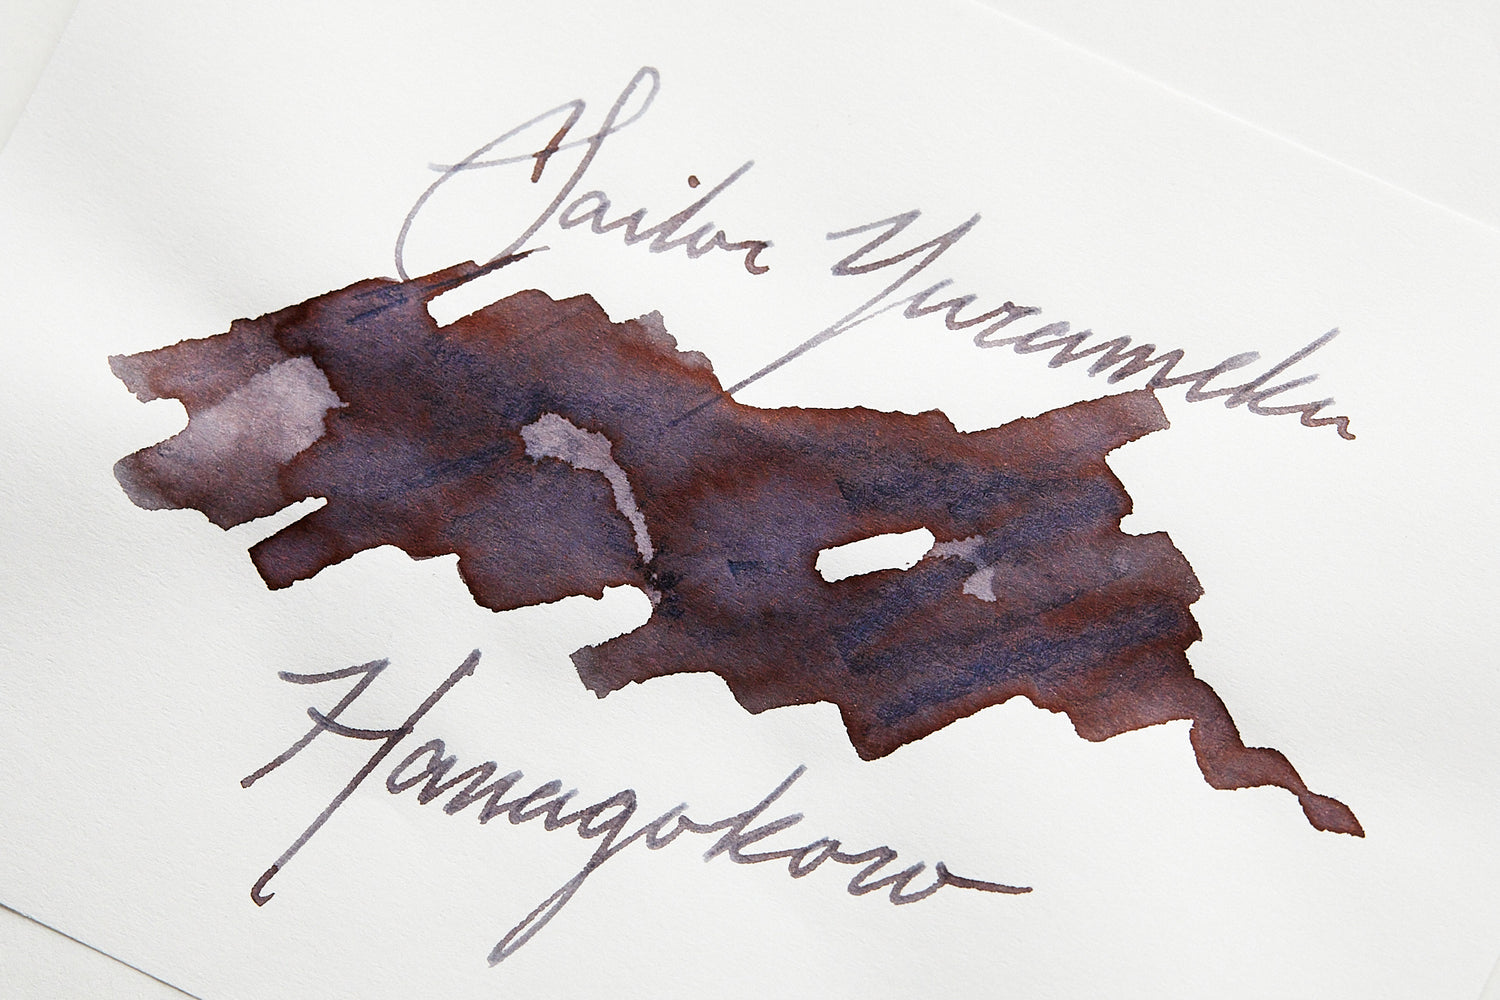 Sailor Yurameku
Hanagokoro